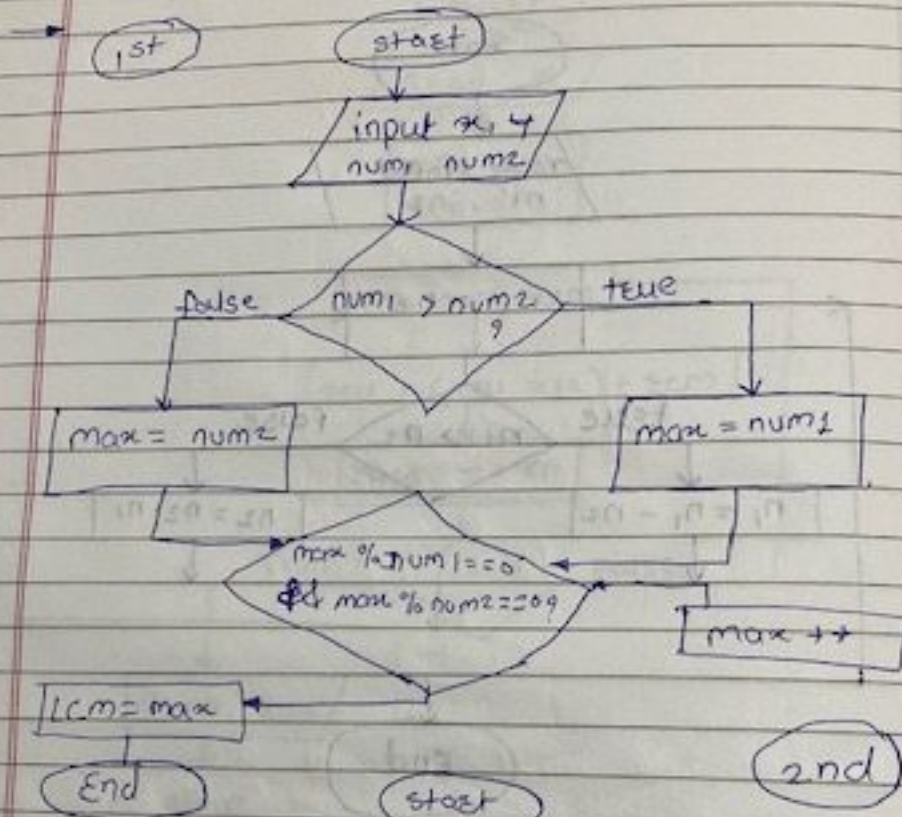 1st
start
input x, y
num1 num2
num1 > num2
?
false
true
max = num2
max = num1
max % num1 == 0
&& max % num2 == 0 ?
max ++
LCM = max
End
start
2nd